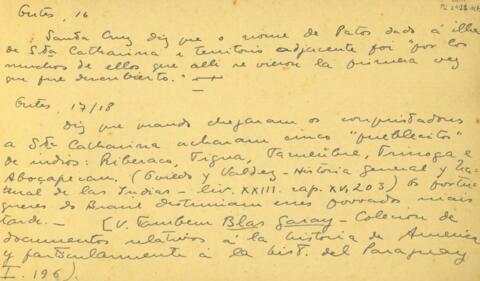 Gutes, 16
Santa Cruz diz que o nome de Patos dado á ilha
de Sta Catharina e territorio adjacente foi "por los
muchos de ellos que alli se vieron la primera vez
que fue descubierto."
Gutes, 17/18
Diz que quando chegaram os conquistadores
a Sta Catharina acharam cinco "pueblecitos"
de indios: Ribera&co, Tigua, Tameubre, Trinoga e
Abogapecam. (Oviedo y Valdez - História general y Na-
tural de las Indias - liv. XXIII. cap. XV, 203) Os portu-
guezes do Brasil destruiram esses povoados mais
tarde. - [V. tambem Blas Garay - Coleccion de
documentos relativos á la historia de America
y particularmente á la hist. del Paraguay
I. 196).